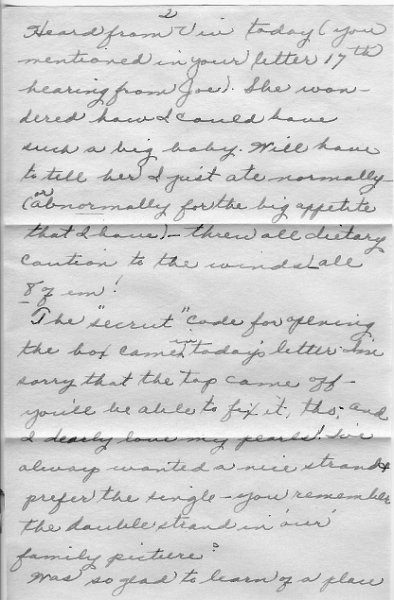 2
Heard from Viv today (you
mentioned in your letter 17th
hearing from Joe). She won-
dered how I could have
such a big baby. Will have
to tell her I just ate normally
(or abnormally for the big appetite
that I have) - threw all dietary
caution to the winds - all
8 of em!
The "secrut" code for opening
the box came in today's letter. I'm
sorry that the top came off -
you'll be able to fix it, tho, and
I dearly love my pearls! I've
always wanted a nice strand &
prefer the single - you remember
the double strand in 'our'
family picture?
Was so glad to learn of a place